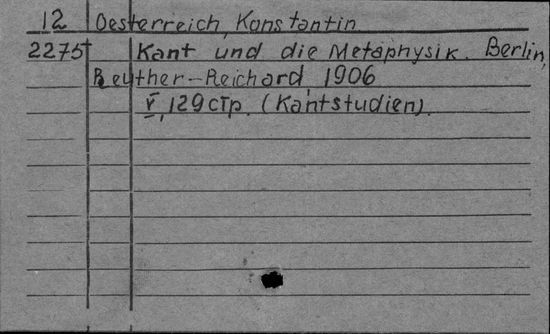 12 Oesterreich, Konstantin
2275 Kant und die Metaphysik. Berlin,
Reuther-Reichard, 1906
V, 129 стр. (Kantstudien).